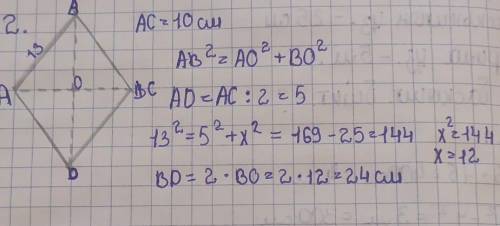 2.
B
13
A
O
DC
D
AC = 10 см
AB² = AO² + BO²
AO = AC : 2 = 5
13² = 5² + x² = 169 - 25 = 144
x² = 144
x = 12
BD = 2 · BO = 2 · 12 = 24 см